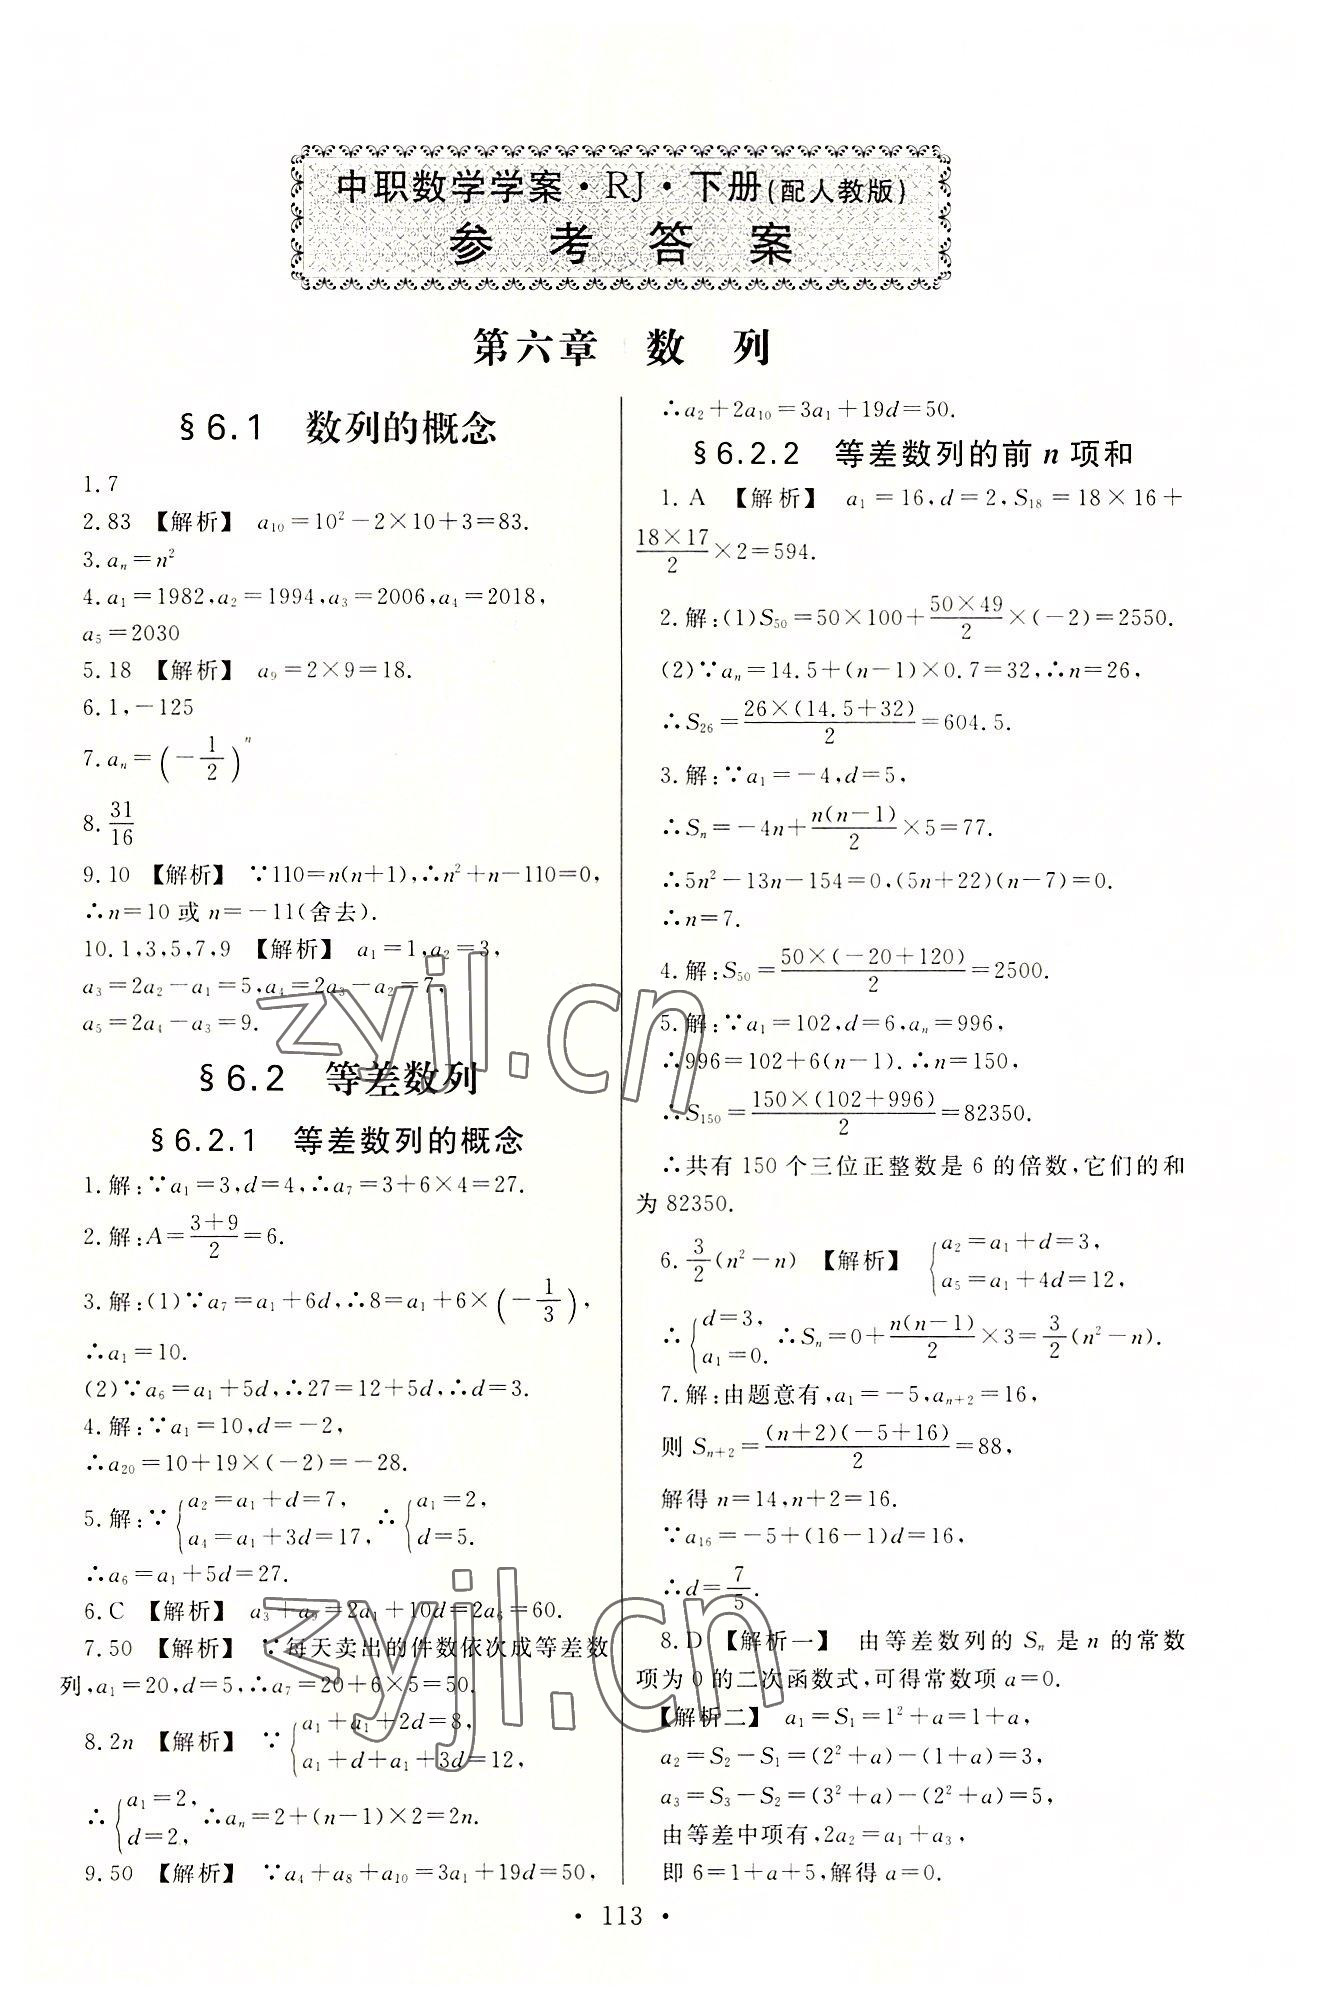 中职数学学案·RJ·下册(配人教版)
参 考 答 案
第六章 数 列
§6.1 数列的概念
1.7
2.83 【解析】 a₁₀=10²-2×10+3=83.
3.aₙ=n²
4.a₁=1982,a₂=1994,a₃=2006,a₄=2018,
a₅=2030
5.18 【解析】 a₉=2×9=18.
6.1,-125
7.aₙ=(-1/2)ⁿ
8.31/16
9.10 【解析】 ∵110=n(n+1),∴n²+n-110=0,
∴n=10 或 n=-11(舍去).
10.1,3,5,7,9 【解析】 a₁=1,a₂=3,
a₃=2a₂-a₁=5,a₄=2a₃-a₂=7,
a₅=2a₄-a₃=9.
§6.2 等差数列
§6.2.1 等差数列的概念
1.解:∵a₁=3,d=4,∴a₇=3+6×4=27.
2.解:A=(3+9)/2=6.
3.解:(1)∵a₇=a₁+6d,∴8=a₁+6×(-1/3),
∴a₁=10.
(2)∵a₆=a₁+5d,∴27=12+5d,∴d=3.
4.解:∵a₁=10,d=-2,
∴a₂₀=10+19×(-2)=-28.
5.解:∵{a₂=a₁+d=7, a₄=a₁+3d=17, ∴{a₁=2, d=5.
∴a₆=a₁+5d=27.
6.C 【解析】 a₃+a₉=2a₁+10d=2a₆=60.
7.50 【解析】 ∵每天卖出的件数依次成等差数
列,a₁=20,d=5,∴a₇=20+6×5=50.
8.2n 【解析】 ∵{a₁+a₁+2d=8, a₁+d+a₁+3d=12,
∴{a₁=2, d=2, ∴aₙ=2+(n-1)×2=2n.
9.50 【解析】 ∵a₄+a₈+a₁₀=3a₁+19d=50,
∴a₂+2a₁₀=3a₁+19d=50.
§6.2.2 等差数列的前 n 项和
1.A 【解析】 a₁=16,d=2,S₁₈=18×16+
(18×17)/2×2=594.
2.解:(1)S₅₀=50×100+(50×49)/2×(-2)=2550.
(2)∵aₙ=14.5+(n-1)×0.7=32,∴n=26,
∴S₂₆=26×(14.5+32)/2=604.5.
3.解:∵a₁=-4,d=5,
∴Sₙ=-4n+n(n-1)/2×5=77.
∴5n²-13n-154=0,(5n+22)(n-7)=0.
∴n=7.
4.解:S₅₀=50×(-20+120)/2=2500.
5.解:∵a₁=102,d=6,aₙ=996,
∴996=102+6(n-1).∴n=150,
∴S₁₅₀=150×(102+996)/2=82350.
∴共有 150 个三位正整数是 6 的倍数,它们的和
为 82350.
6.3/2(n²-n) 【解析】 {a₂=a₁+d=3, a₅=a₁+4d=12,
∴{d=3, a₁=0. ∴Sₙ=0+n(n-1)/2×3=3/2(n²-n).
7.解:由题意有,a₁=-5,aₙ₊₂=16,
则 Sₙ₊₂=(n+2)(-5+16)/2=88,
解得 n=14,n+2=16.
∵a₁₆=-5+(16-1)d=16,
∴d=7/5.
8.D 【解析一】 由等差数列的 Sₙ 是 n 的常数
项为 0 的二次函数式,可得常数项 a=0.
【解析二】 a₁=S₁=1²+a=1+a,
a₂=S₂-S₁=(2²+a)-(1+a)=3,
a₃=S₃-S₂=(3²+a)-(2²+a)=5,
由等差中项有,2a₂=a₁+a₃,
即 6=1+a+5,解得 a=0.
• 113 •
zyjl.cn
zyjl.cn